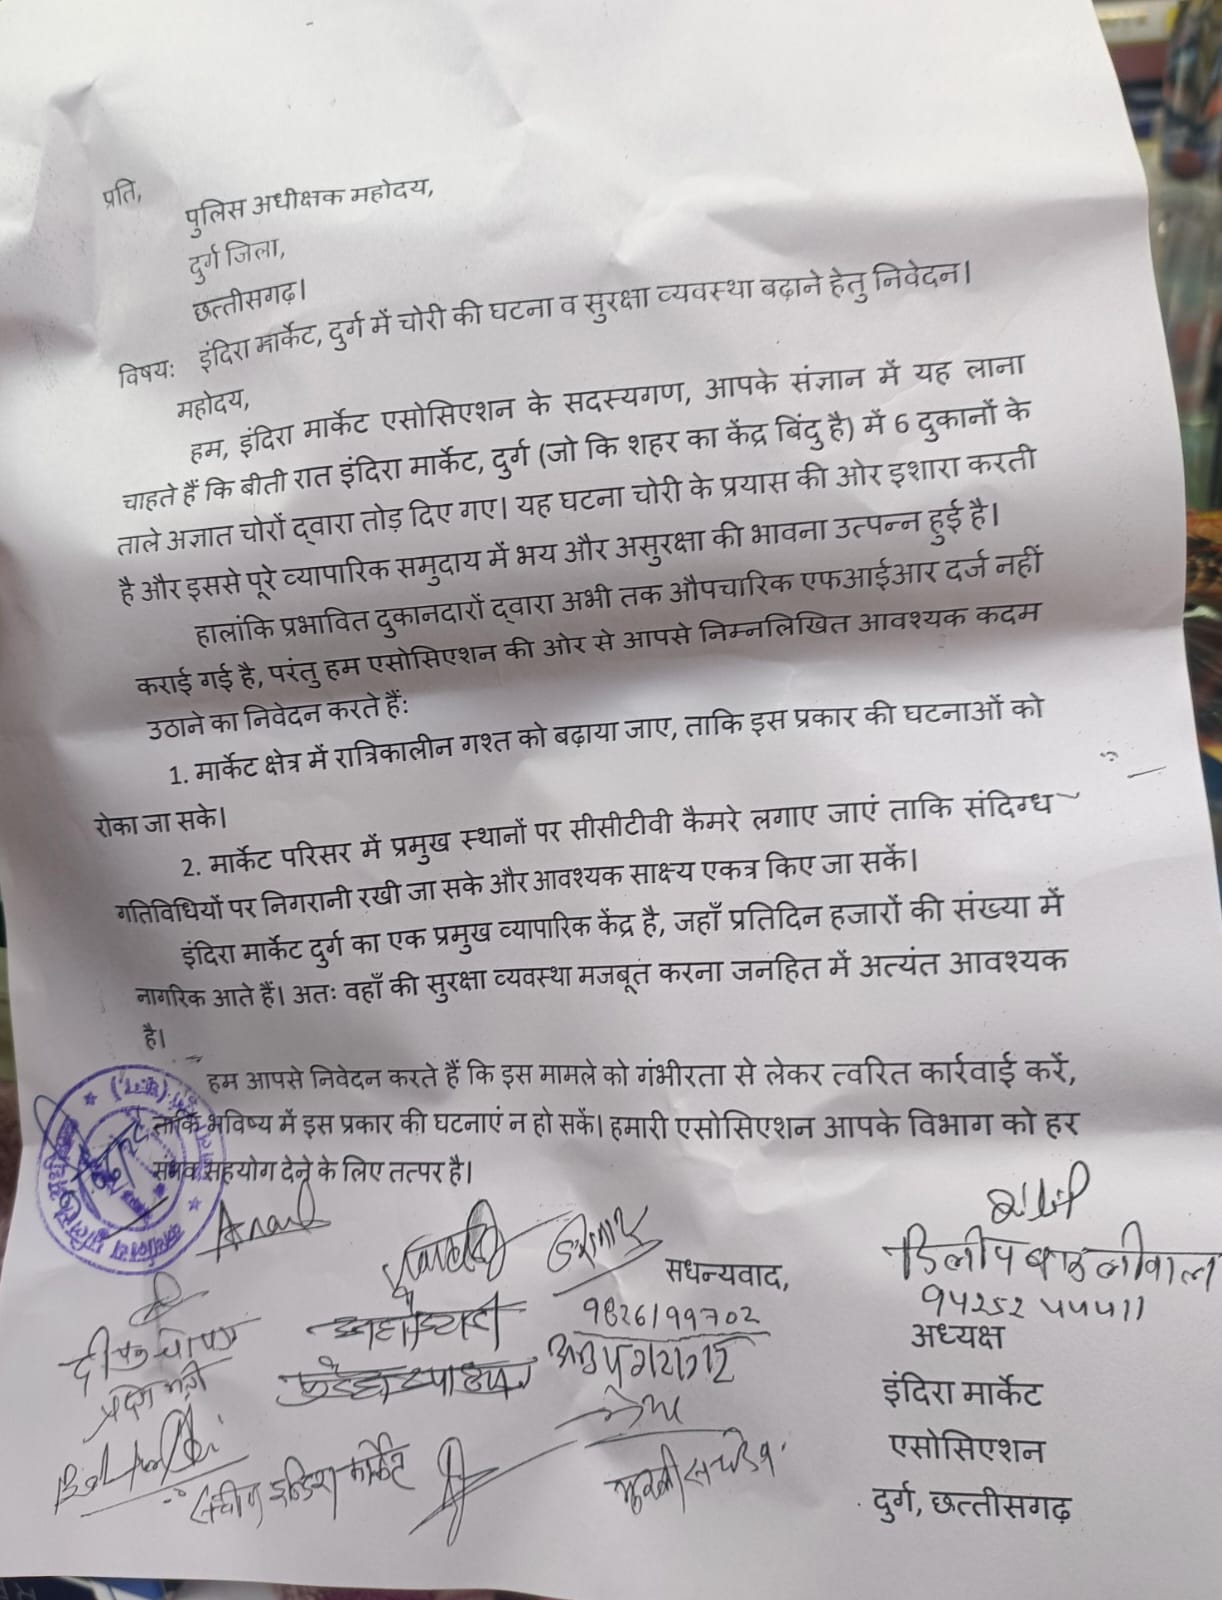 प्रति,
पुलिस अधीक्षक महोदय,
दुर्ग जिला,
छत्तीसगढ़।
विषयः इंदिरा मार्केट, दुर्ग में चोरी की घटना व सुरक्षा व्यवस्था बढ़ाने हेतु निवेदन।
महोदय,
हम, इंदिरा मार्केट एसोसिएशन के सदस्यगण, आपके संज्ञान में यह लाना
चाहते हैं कि बीती रात इंदिरा मार्केट, दुर्ग (जो कि शहर का केंद्र बिंदु है) में 6 दुकानों के
ताले अज्ञात चोरों द्वारा तोड़ दिए गए। यह घटना चोरी के प्रयास की ओर इशारा करती
है और इससे पूरे व्यापारिक समुदाय में भय और असुरक्षा की भावना उत्पन्न हुई है।
हालांकि प्रभावित दुकानदारों द्वारा अभी तक औपचारिक एफआईआर दर्ज नहीं
कराई गई है, परंतु हम एसोसिएशन की ओर से आपसे निम्नलिखित आवश्यक कदम
उठाने का निवेदन करते हैं:
1. मार्केट क्षेत्र में रात्रिकालीन गश्त को बढ़ाया जाए, ताकि इस प्रकार की घटनाओं को
रोका जा सके।
2. मार्केट परिसर में प्रमुख स्थानों पर सीसीटीवी कैमरे लगाए जाएं ताकि संदिग्ध
गतिविधियों पर निगरानी रखी जा सके और आवश्यक साक्ष्य एकत्र किए जा सकें।
इंदिरा मार्केट दुर्ग का एक प्रमुख व्यापारिक केंद्र है, जहाँ प्रतिदिन हजारों की संख्या में
नागरिक आते हैं। अतः वहाँ की सुरक्षा व्यवस्था मजबूत करना जनहित में अत्यंत आवश्यक
है।
हम आपसे निवेदन करते हैं कि इस मामले को गंभीरता से लेकर त्वरित कार्रवाई करें,
ताकि भविष्य में इस प्रकार की घटनाएं न हो सकें। हमारी एसोसिएशन आपके विभाग को हर
संभव सहयोग देने के लिए तत्पर है।
सधन्यवाद,
9826199702
94252 44411
अध्यक्ष
इंदिरा मार्केट
एसोसिएशन
दुर्ग, छत्तीसगढ़
इन्दिरा मार्केट